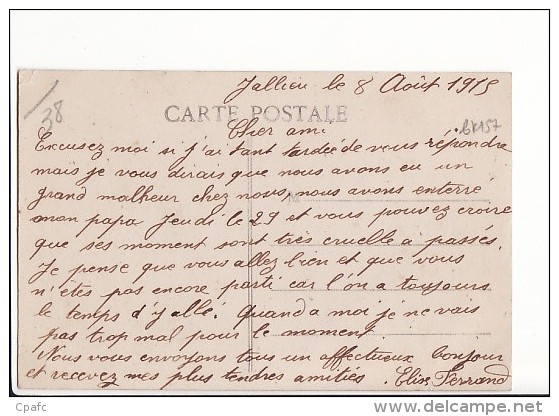 Jallieu le 8 Août 1915
38
CARTE POSTALE
Cher ami
Excusez moi si j'ai tant tardée de vous répondre
mais je vous dirais que nous avons eu un
grand malheur chez nous, nous avons enterré
mon papa Jeudi le 29 et vous pouvez croire
que ses moment sont très cruelle à passés.
Je pense que vous allez bien et que vous
n'êtes pas encore parti car l'on a toujours
le temps d'y allé. Quand a moi je ne vais
pas trop mal pour le moment.
Nous vous envoyons tous un affectueux bonjour
et recevez mes plus tendres amitiés. Elise Ferrand
© Cpafc
delcampe.net